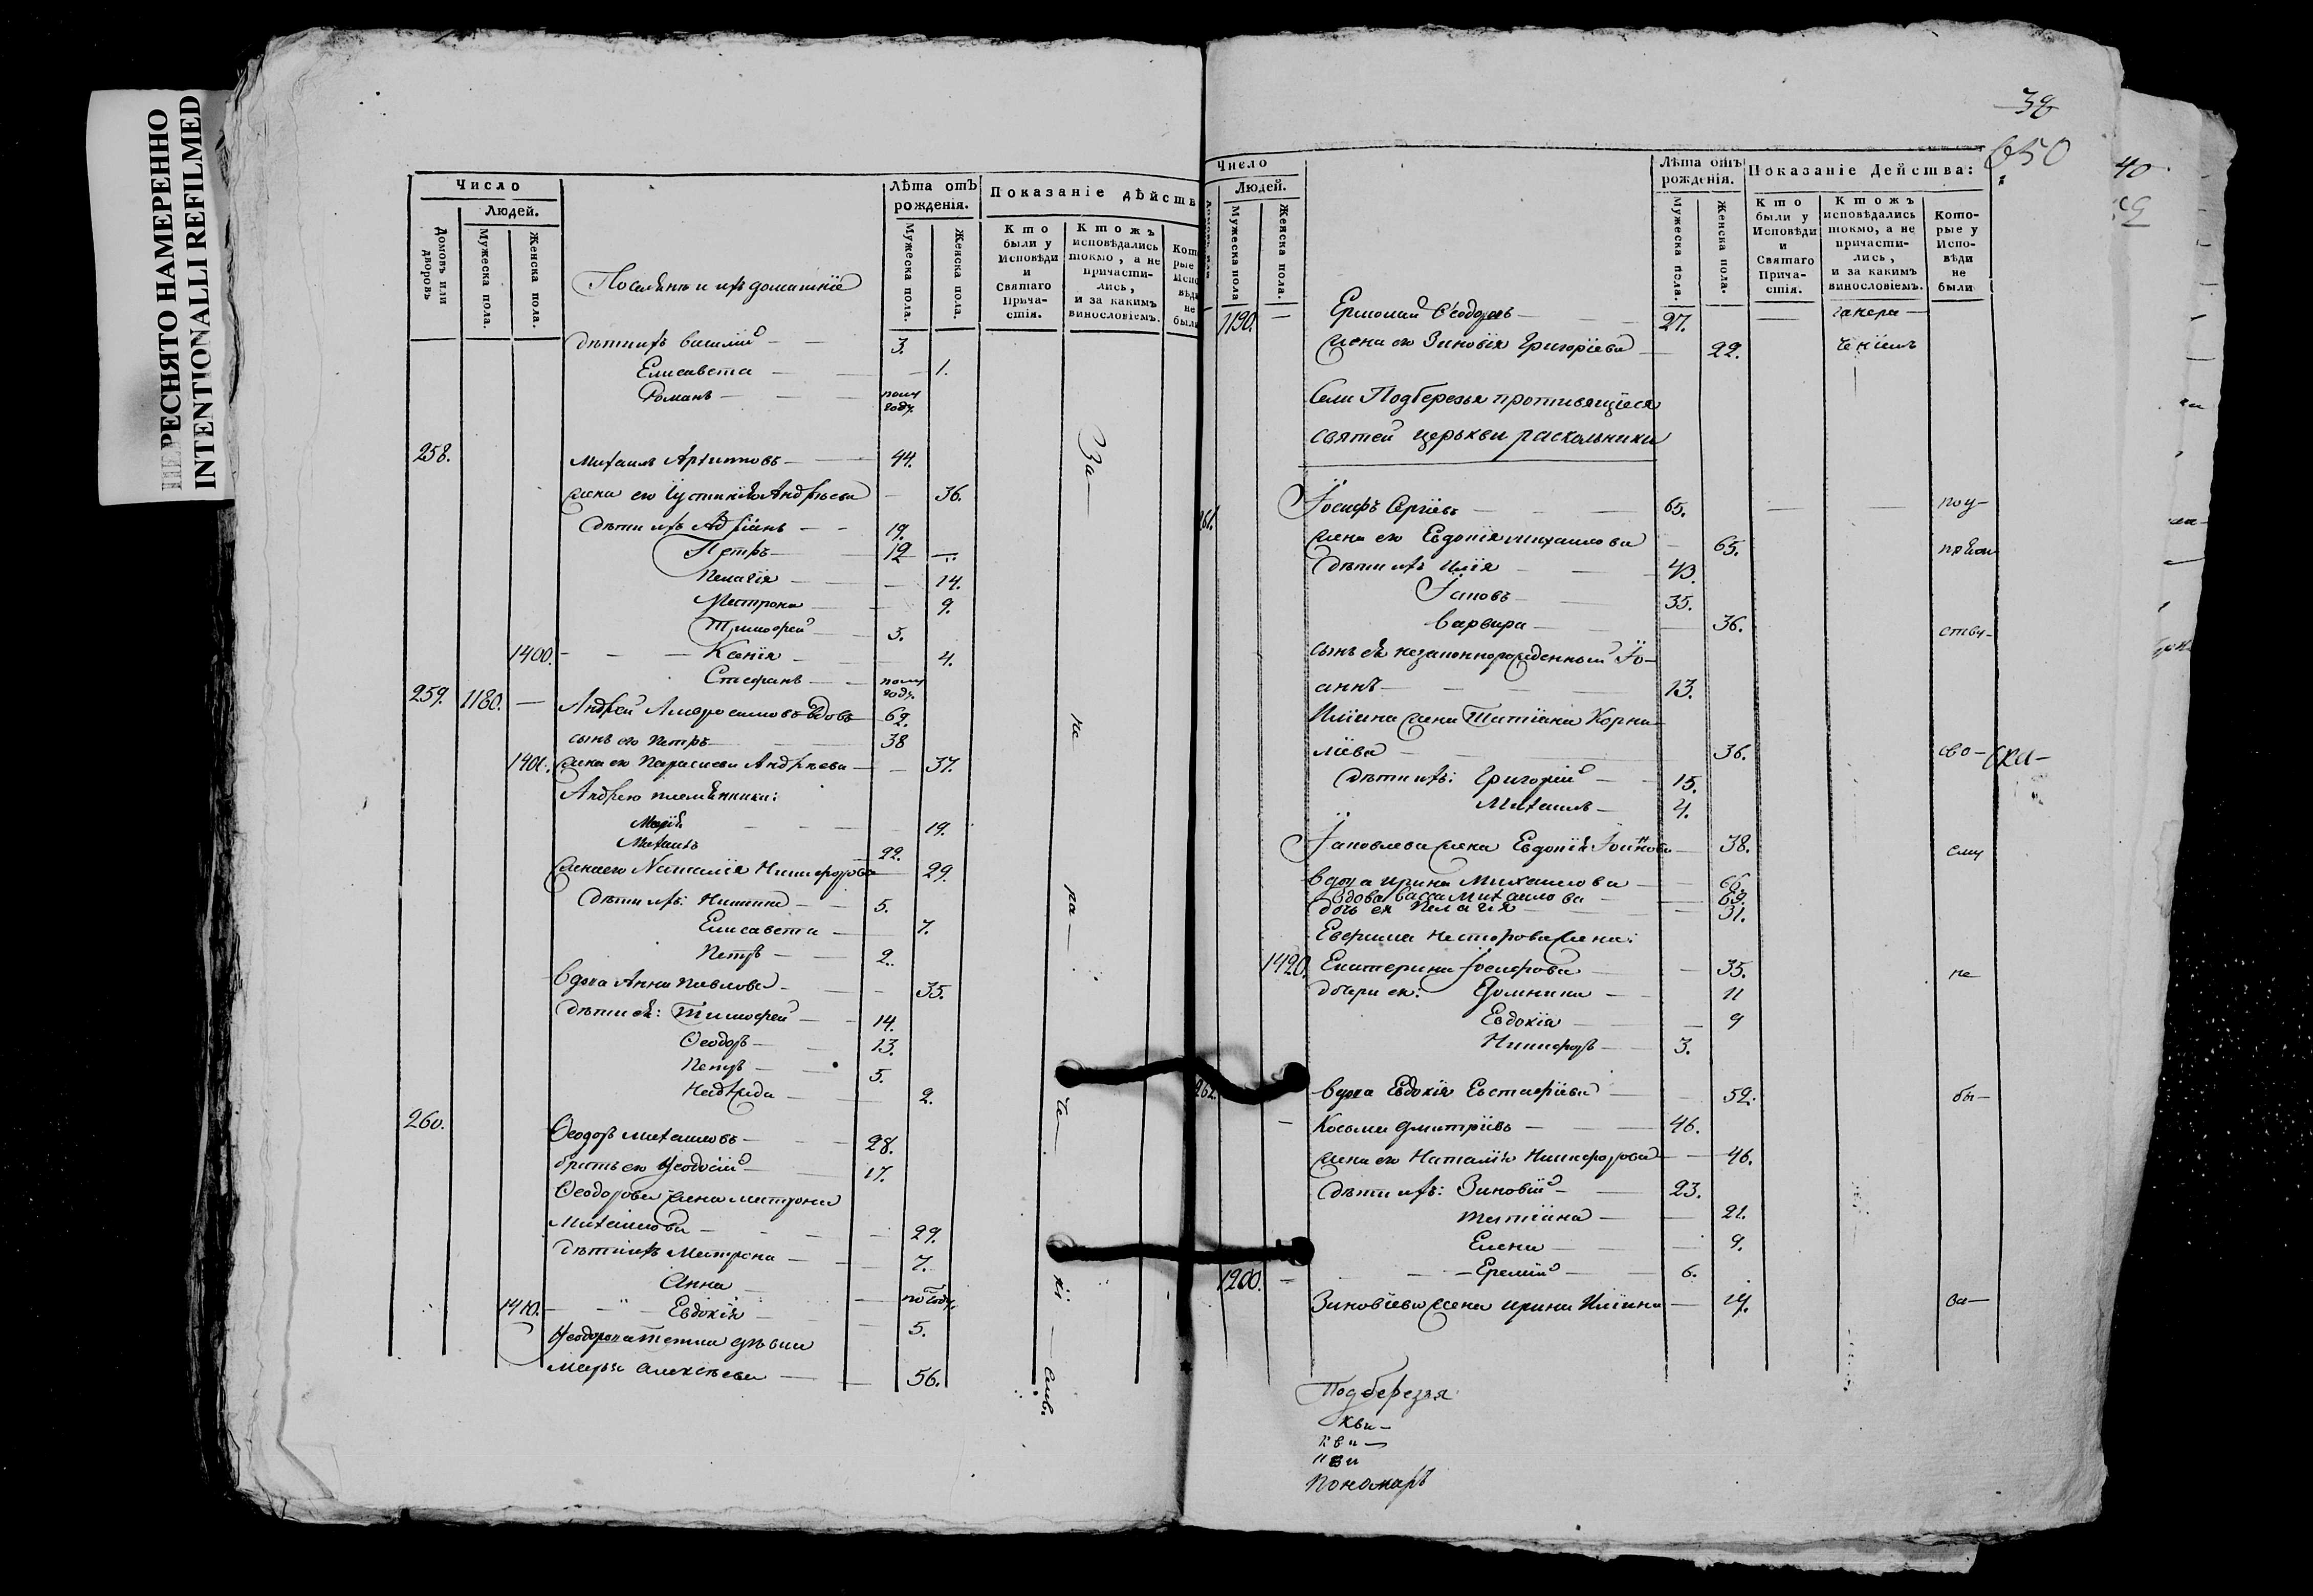 ПЕРЕСНЯТО НАМЕРЕННО
INTENTIONALLI REFILMED
Число
Людей.
Домовъ или дворовъ
Мужеска пола.
Женска пола.
Посадскіе и ихъ домашніе
Лѣта отъ рожденія.
Мужеска пола.
Женска пола.
Показаніе дѣйств
Кто были у Исповѣди и Святаго Прича-стія.
Ктожъ исповѣдались токмо, а не причасти-лись, и за какимъ винословіемъ.
дѣти ихъ Василій — 3.
Елисавета — 1.
Романъ — полу году.
258. Михаилъ Архиповъ — 44.
жена его Іустинія Андрѣева — 36.
дѣти ихъ Адріанъ — 19.
Петръ — 12 —
Пелагія — 14.
Матрона — 9.
Тимофей — 5.
1400. — Ксенія — 4.
Стефанъ — полу году.
259. 1180. — Андрей Амвросимовъ вдовъ — 62.
сынъ его Петръ — 38
1401. жена его Парасковія Андрѣева — 37.
Андрею племянники:
Марія — 19.
Михаилъ — 22.
жена его Наталія Никифорова — 29.
дѣти ихъ: Никита — 5.
Елисавета — 7.
Петръ — 2.
вдова Анна Павлова — 35.
дѣти ея: Тимофей — 14.
Ѳеодоръ — 13.
Петръ — 5.
2.
260. Ѳеодоръ Михаиловъ — 28.
братъ его Ѳеодосій — 17.
Ѳеодорова жена Матрона
Михаилова — 29.
дѣти ихъ Матрона — 7.
Анна — полгоду.
1410. — Евдокія — 5.
Ѳеодорова тетка дѣвка
Марья Алексѣева — 56.
За — не — ра — че — ні — емъ.
38
650
Число
Людей.
Мужеска пола
Женска пола.
Лѣта отъ рожденія.
Мужеска пола.
Женска пола.
Показаніе Действа:
Кто были у Исповѣди и Святаго Прича-стія.
Ктожъ исповѣдались токмо, а не причасти-лись, и за какимъ винословіемъ.
Кото-рые у Испо-вѣди не были
1190. — Ермолай Ѳеодоровъ — 27.
жена его Зиновія Григоріева — 22. ченіемъ
Села Подберезья противящіеся
святей церькви раскольники
261. Іосифъ Сергіевъ — 65. — поу-
жена его Евдокія Михаилова — 65.
дѣти ихъ Илія — 43.
Іаковъ — 35.
Варвара — 36.
сынъ ея незаконнорожденный Іо-
аннъ — 13.
Иліина жена Татіана Корни-
ліева — 36. сво-
дѣти ихъ: Григорій — 15.
Михаилъ — 4.
Іаковлева жена Евдокія Іоаннова — 38. ему
вдова Ирина Михаилова — 66.
вдова Васса Михаилова — 63.
дочь ея Пелагія — 31.
Нестерова жена:
1420. Екатерина Іосифова — 35. не
дочери ея: Домника — 11
Евдокія — 9
Никифоръ — 3.
262. вдова Евдокія Евстафіева — 52. бы-
Косьма Дмитріевъ — 46.
жена его Наталія Никифорова — 46.
дѣти ихъ: Зиновій — 23.
Татіана — 21.
Елена — 9.
1200. — Еремій — 6.
Зиновіева жена Ирина Иліина — 24. ва-
Подберезья
кви-
кви-
кви
пономарь
40